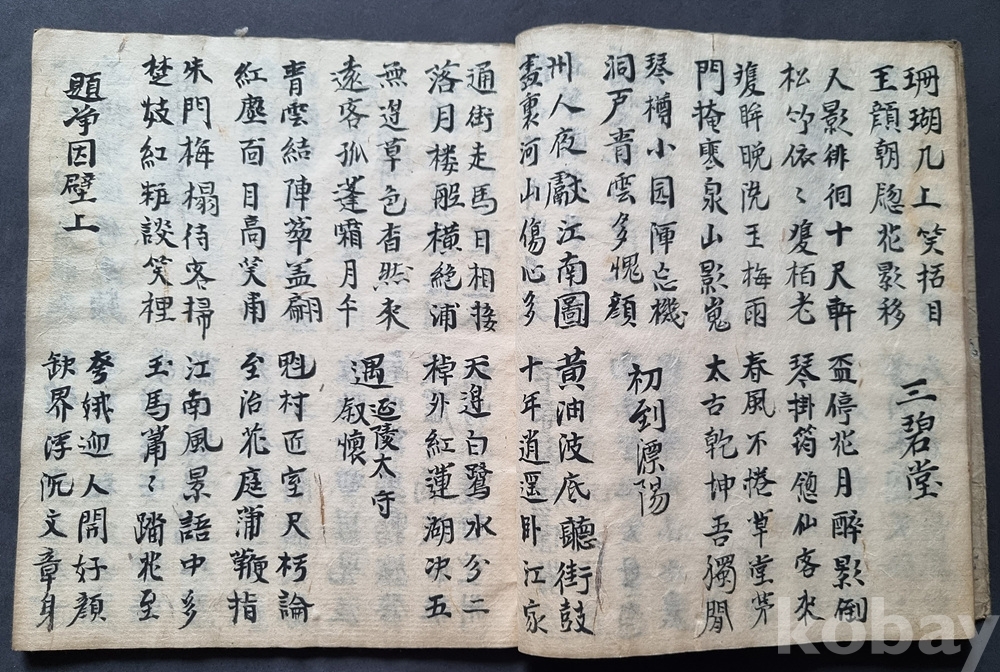 珊瑚几上笑招目
王顔朝牕花影移
三碧堂
人影徘徊十尺軒
盃停花月醉影倒
松竹依〻夐栢老
琴掛筠牕仙客來
夐眸晩洗玉梅雨
春風不捲草堂茅
門掩寒泉山影嵬
太古乾坤吾獨閒
琴樽小园渾忘機
洞戶青雲多愧顔
初到溧陽
州人夜獻江南圖
黃油波底聽街鼓
畫裏河山傷心多
十年逍遥卧江家
通街走馬日相接
天邊白鷺水分二
落月楼船横絶浦
棹外紅蓮湖决五
無邊草色杳然來
遠客孤蓬霜月午
遇延陵太守
叙懷
青雲結陣華盖翩
魁村匠室尺朽論
紅塵面目高笑甫
至治花庭蒲鞭指
朱門梅榻待客掃
江南風景語中多
楚妓紅粧談笑裡
玉馬蕭〻踏花至
題净因壁上
娥迎人開好顔
缺界浮沉文章身
kobay